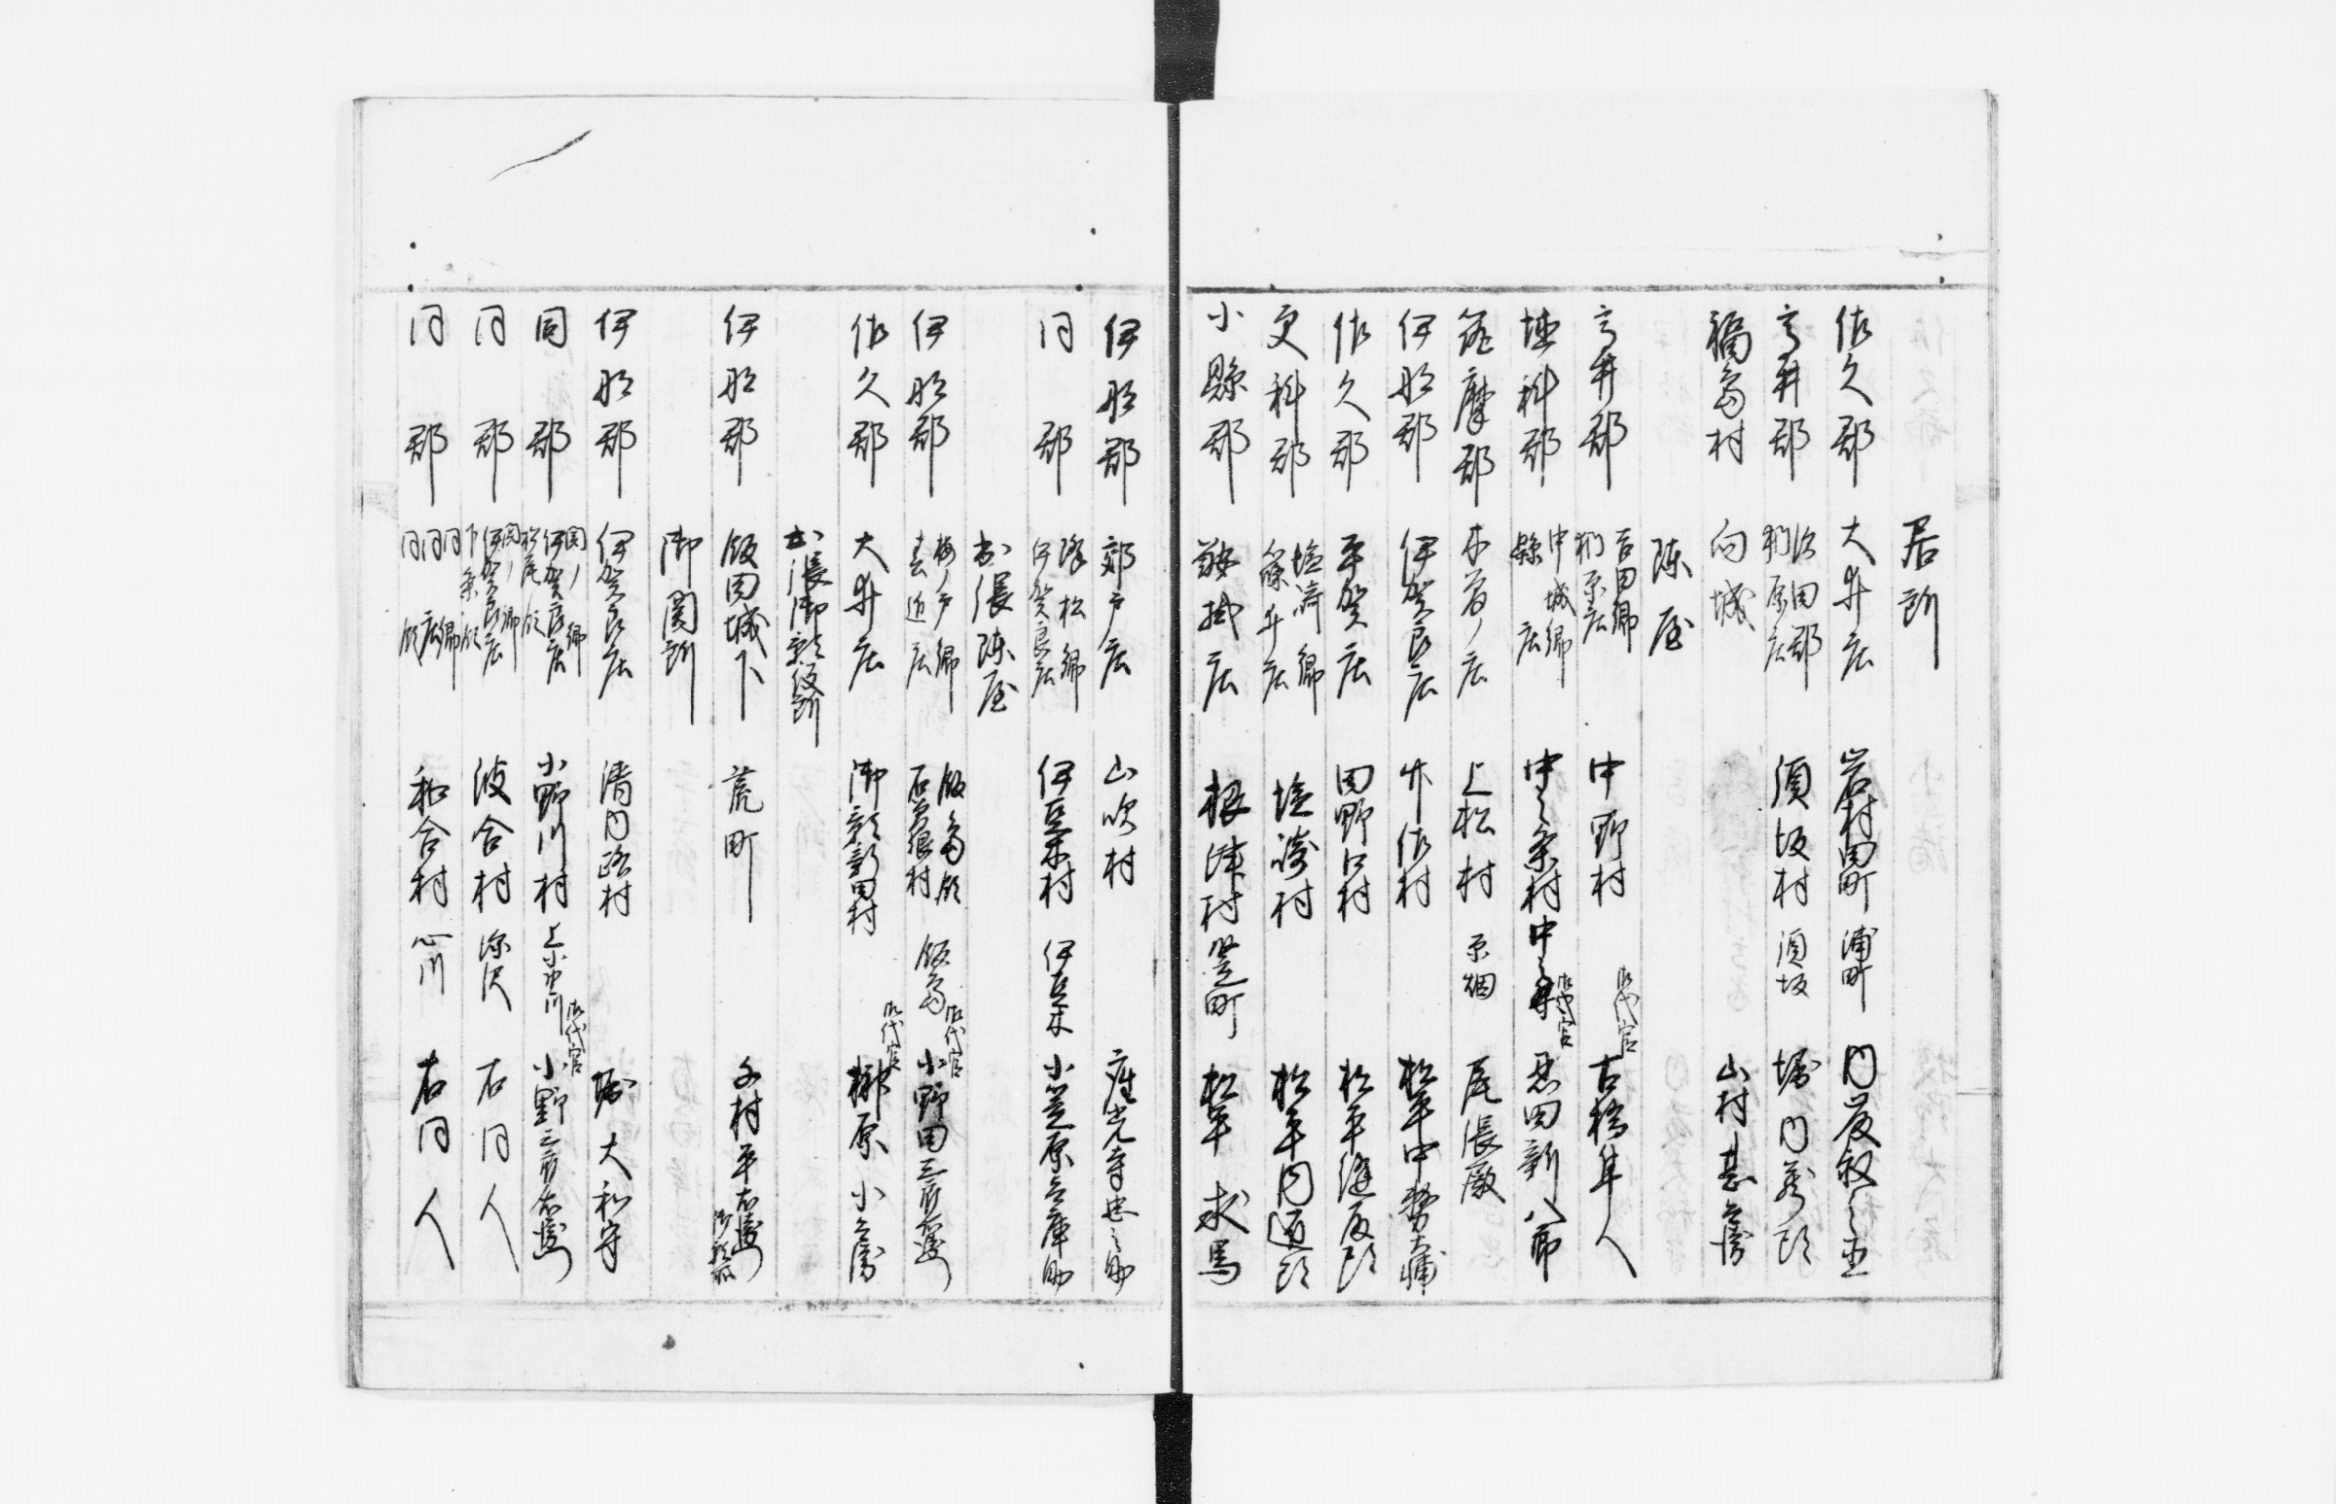 居所
佐久郡 大井庄 岩村田町 浦町 内藤叙之丞
高井郡 沼田郡 狩原庄 須坂村 須坂 堀内蔵頭
福嶋村 向城 山村甚兵衛
陣屋
高井郡 吉田郷 狩原庄 中野村 御代官 古橋隼人
埴科郡 中城郷 縣庄 中之条村 中之条 御代官 恩田新八郎
筑摩郡 木曽ノ庄 上松村 原畑 尾張殿
伊那郡 伊賀良庄 竹佐村 松平中務大輔
佐久郡 平賀庄 田野口村 松平縫殿頭
更科郡 塩崎郷 篠井庄 塩崎村 松平内匠頭
小縣郡 鞍掛庄 祢津村 竪町 松平求馬
伊那郡 郊戸庄 山吹村 座光寺忠之助
同郡 浪松郷 伊賀良庄 伊豆木村 伊豆木 小笠原兵庫助
出張陣屋
伊那郡 梅ノ戸郷 春近庄 飯嶋領 石曽根村 飯嶋 御代官 小野田三郎右衛門
佐久郡 大井庄 御影新田村 御代官 榊原小兵衛
出張御影役所
伊那郡 飯田城下 荒町 千村平右衛門 御預所
御関所
伊那郡 伊賀良庄 清内路村 堀大和守
同郡 関ノ郷 伊賀良庄 松尾領 小野川村 上小野川 御代官 小野三郎右衛門
同郡 関ノ郷 伊賀良庄 下条領 波合村 深沢 右同人
同郡 同郷 同庄 同領 和合村 心川 右同人